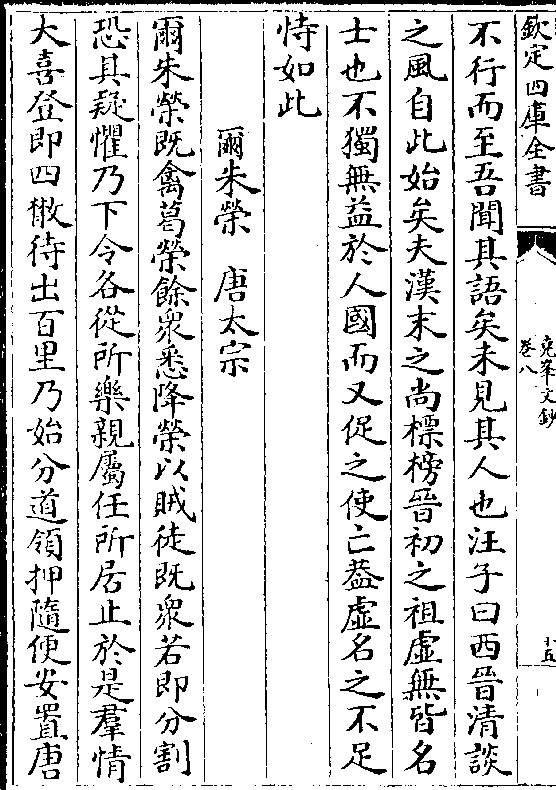 欽定四庫全書
堯峯文鈔
卷八
十五
不行而至吾聞其語矣未見其人也汪子曰西晉清談
之風自此始矣夫漢末之尚標榜晉初之祖虛無皆名
士也不獨無益於人國而又促之使亡葢虛名之不足
恃如此
爾朱榮　唐太宗
爾朱榮既禽葛榮餘衆悉降榮以賊徒既衆若即分割
恐其疑懼乃下令各從所樂親屬任所居止於是羣情
大喜登即四散待出百里乃始分道領押隨便安置唐